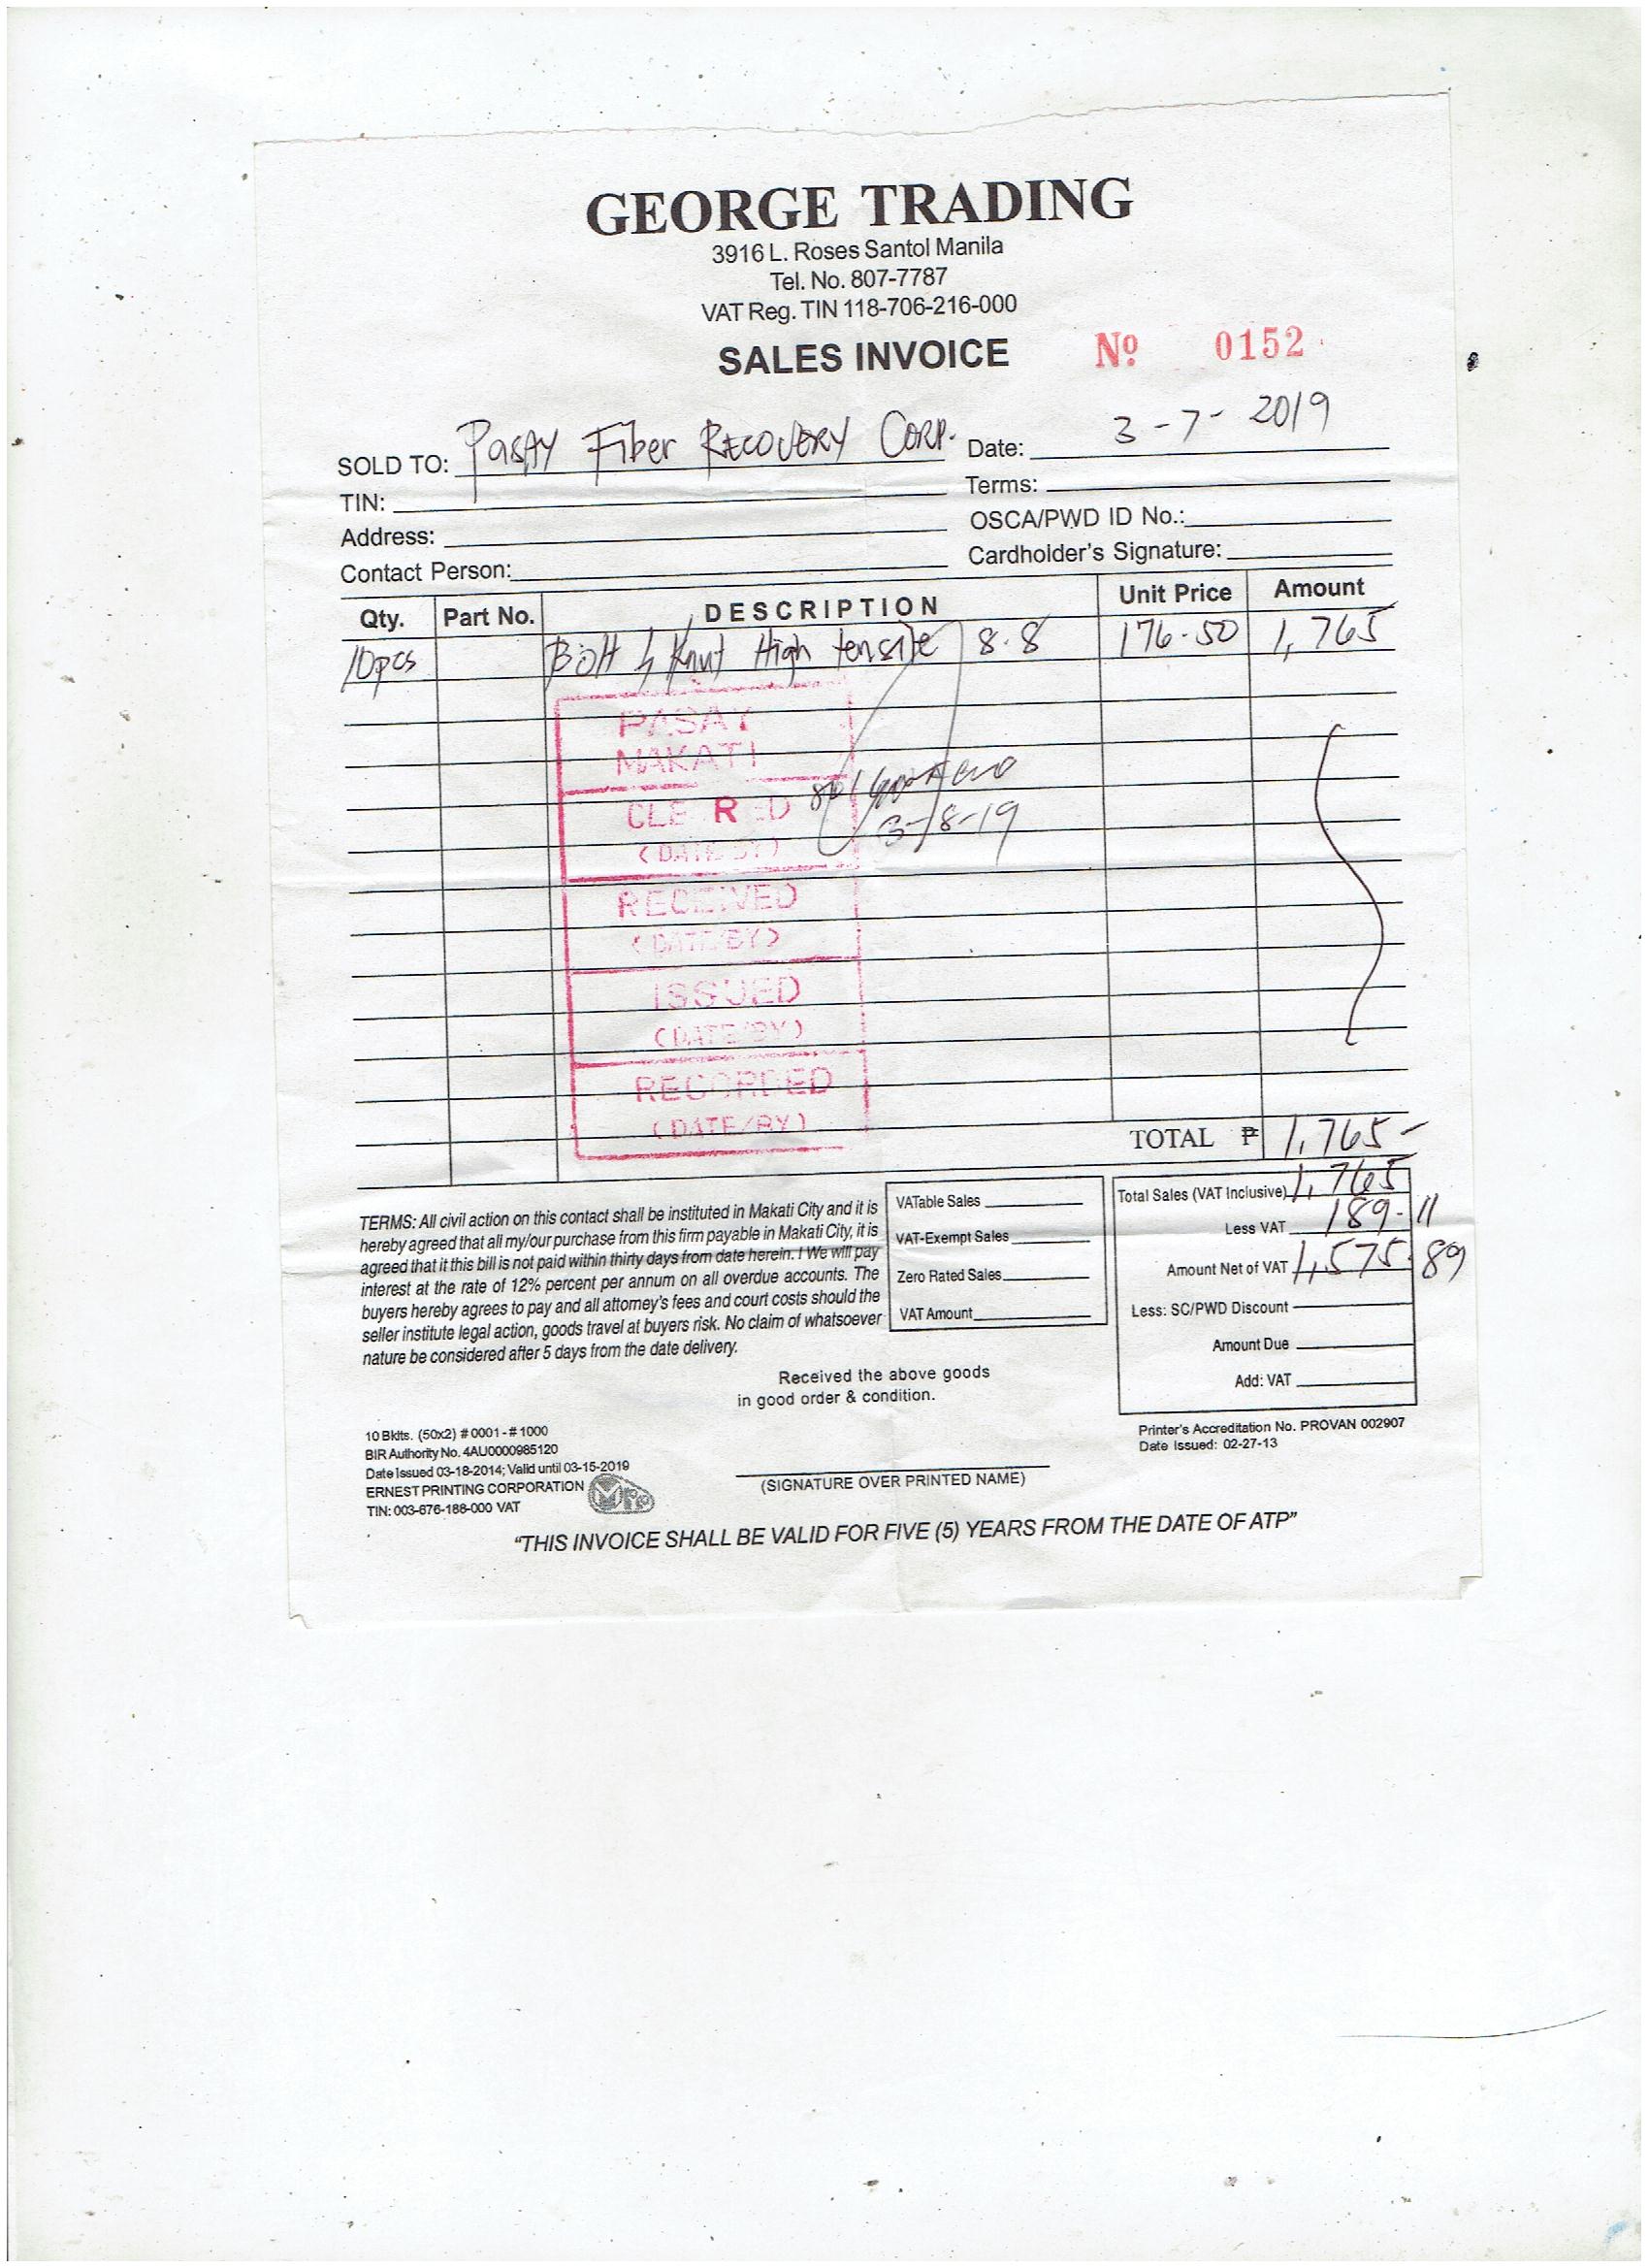 GEORGE TRADING
3916 L. Roses Santol Manila
Tel. No. 807-7787
VAT Reg. TIN 118-706-216-000
SALES INVOICE Nº 0152
SOLD TO: Pasay Fiber Recovery Corp. Date: 3-7-2019
TIN: Terms:
Address: OSCA/PWD ID No.:
Contact Person: Cardholder's Signature:
Qty. Part No. DESCRIPTION Unit Price Amount
10pcs Bolt & Knut High tensile 8.8 176.50 1,765
PASAY
MAKATI
CLE R ED
(DATE/BY)
3-8-19
RECEIVED
(DATE/BY)
ISSUED
(DATE/BY)
RECORDED
(DATE/BY)
TOTAL ₱ 1,765-
TERMS: All civil action on this contact shall be instituted in Makati City and it is
hereby agreed that all my/our purchase from this firm payable in Makati City, it is
agreed that it this bill is not paid within thirty days from date herein. I We will pay
interest at the rate of 12% percent per annum on all overdue accounts. The
buyers hereby agrees to pay and all attorney's fees and court costs should the
seller institute legal action, goods travel at buyers risk. No claim of whatsoever
nature be considered after 5 days from the date delivery.
VATable Sales
VAT-Exempt Sales
Zero Rated Sales
VAT Amount
Total Sales (VAT Inclusive) 1,765
Less VAT 189.11
Amount Net of VAT 1,575.89
Less: SC/PWD Discount
Amount Due
Add: VAT
Received the above goods
in good order & condition.
10 Bklts. (50x2) # 0001 - # 1000
BIR Authority No. 4AU0000985120
Date Issued 03-18-2014; Valid until 03-15-2019
ERNEST PRINTING CORPORATION
TIN: 003-676-188-000 VAT
Printer's Accreditation No. PROVAN 002907
Date Issued: 02-27-13
(SIGNATURE OVER PRINTED NAME)
"THIS INVOICE SHALL BE VALID FOR FIVE (5) YEARS FROM THE DATE OF ATP"